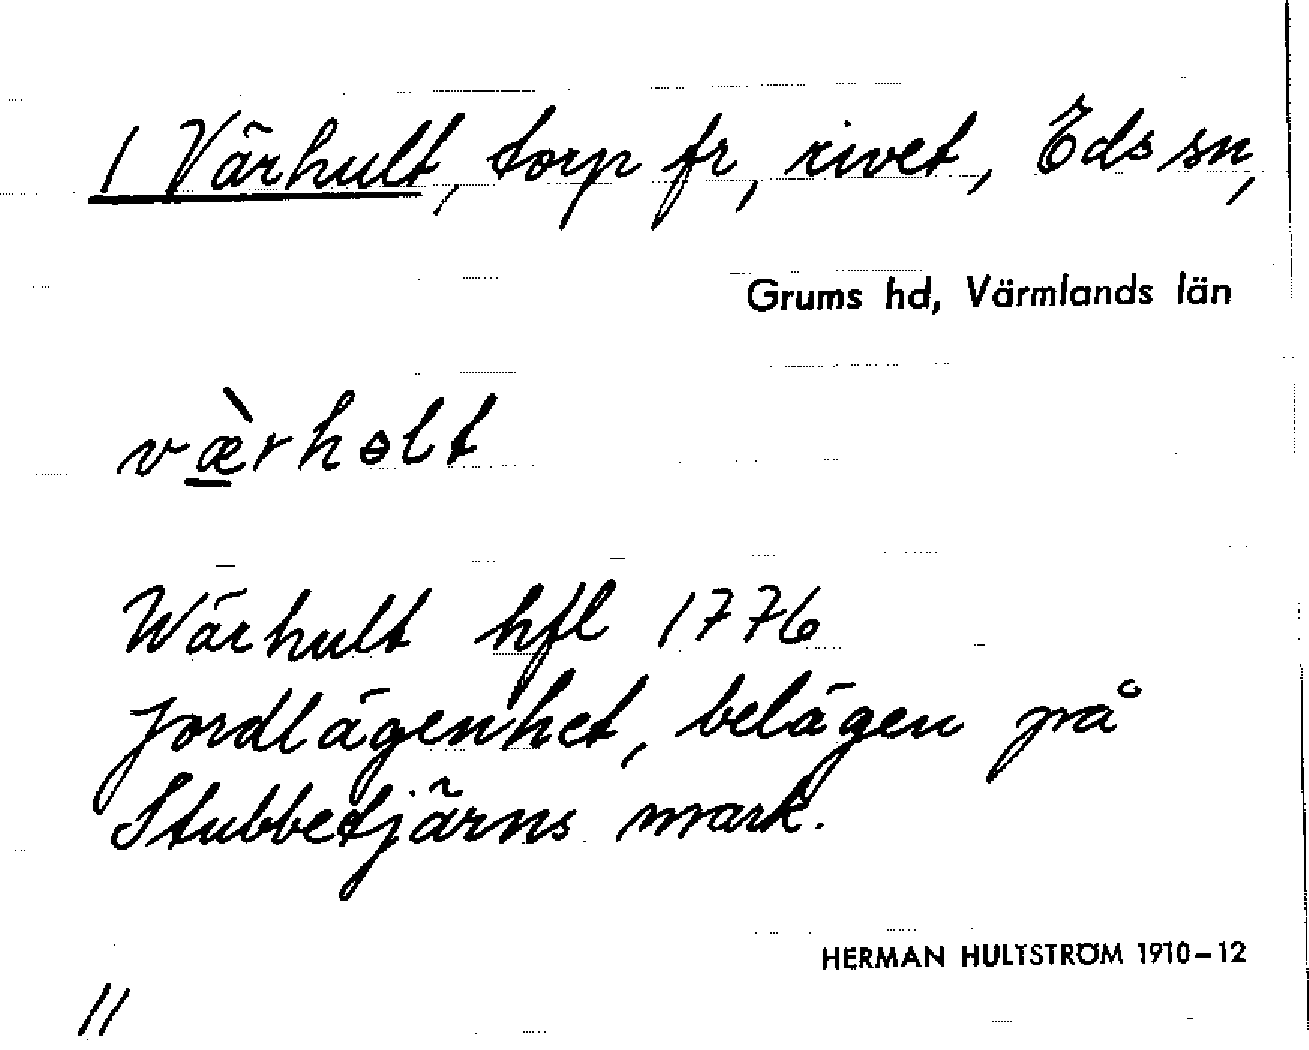 1 Värhult, torp fr, rivet, Eds sn,
Grums hd, Värmlands län
væ̀rhɵlt
Wärhult hfl 1776
Jordlägenhet, belägen på
Stubbetjärns mark.
HERMAN HULTSTRÖM 1910–12
11